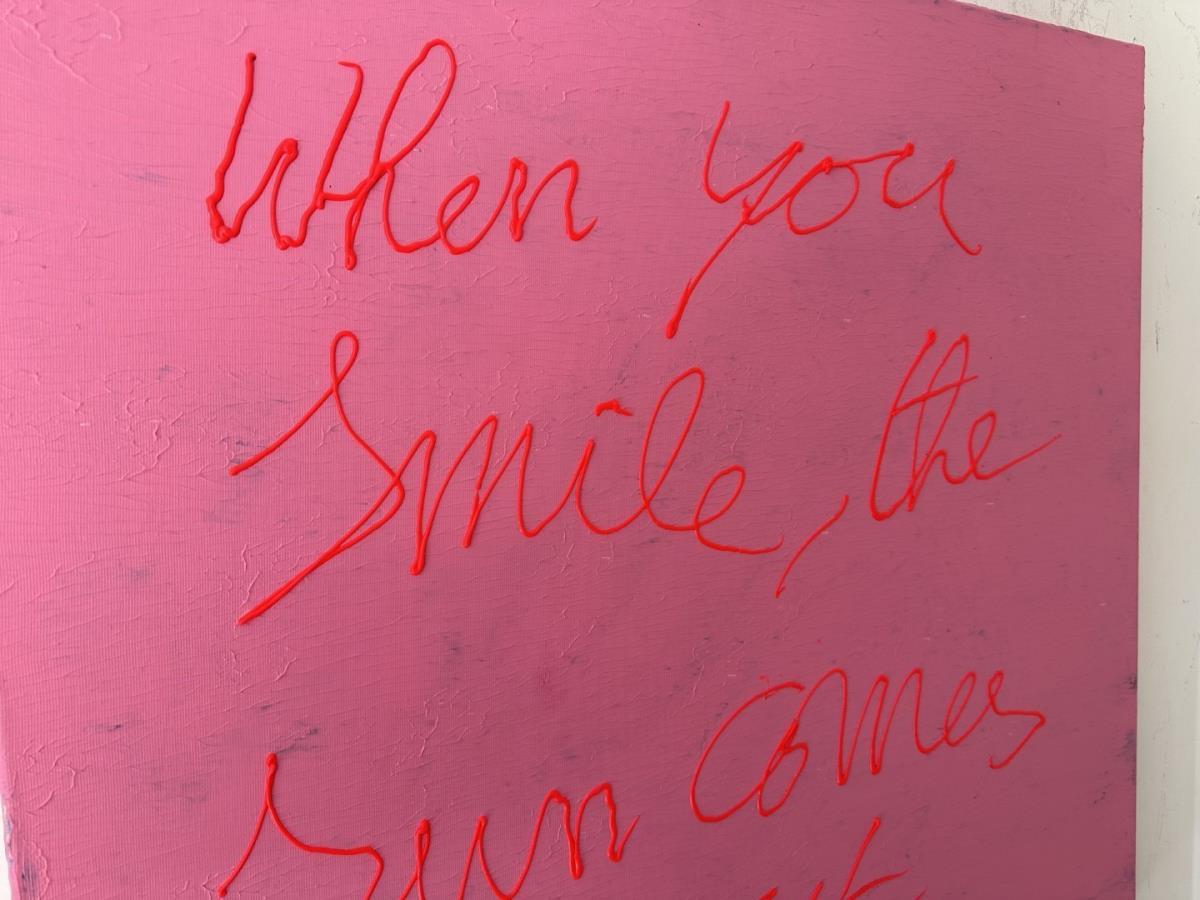 When you
Smile, the
Sun comes